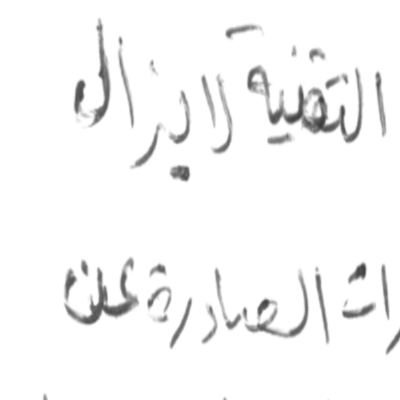 التقنية لا يزال
رات الصادرة عن